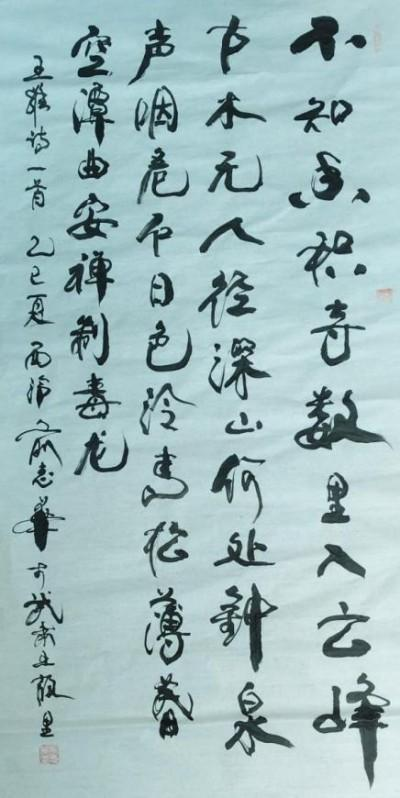 不知香积寺數里入云峰
古木无人径深山何处鐘泉
声咽危石日色冷青松薄暮
空潭曲安禅制毒龙
王維诗一首 乙巳夏 俞志華于武肃王故里